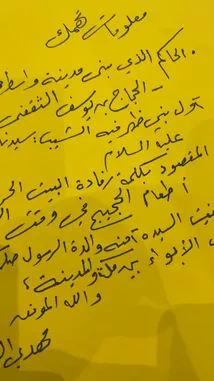 معلومات تهمك
. الحاكم الذي بنى مدينة واسط
- الحجاج بن يوسف الثقفي
أول نبي ظهر فيه الشيب: سيدنا
عليه السلام
المقصود بكلمة رفادة البيت
أطعام الحجيج في وقت
السيدة آمنة والدة الرسول
الأبواء بين مكة والمدينة،
والله الموفق